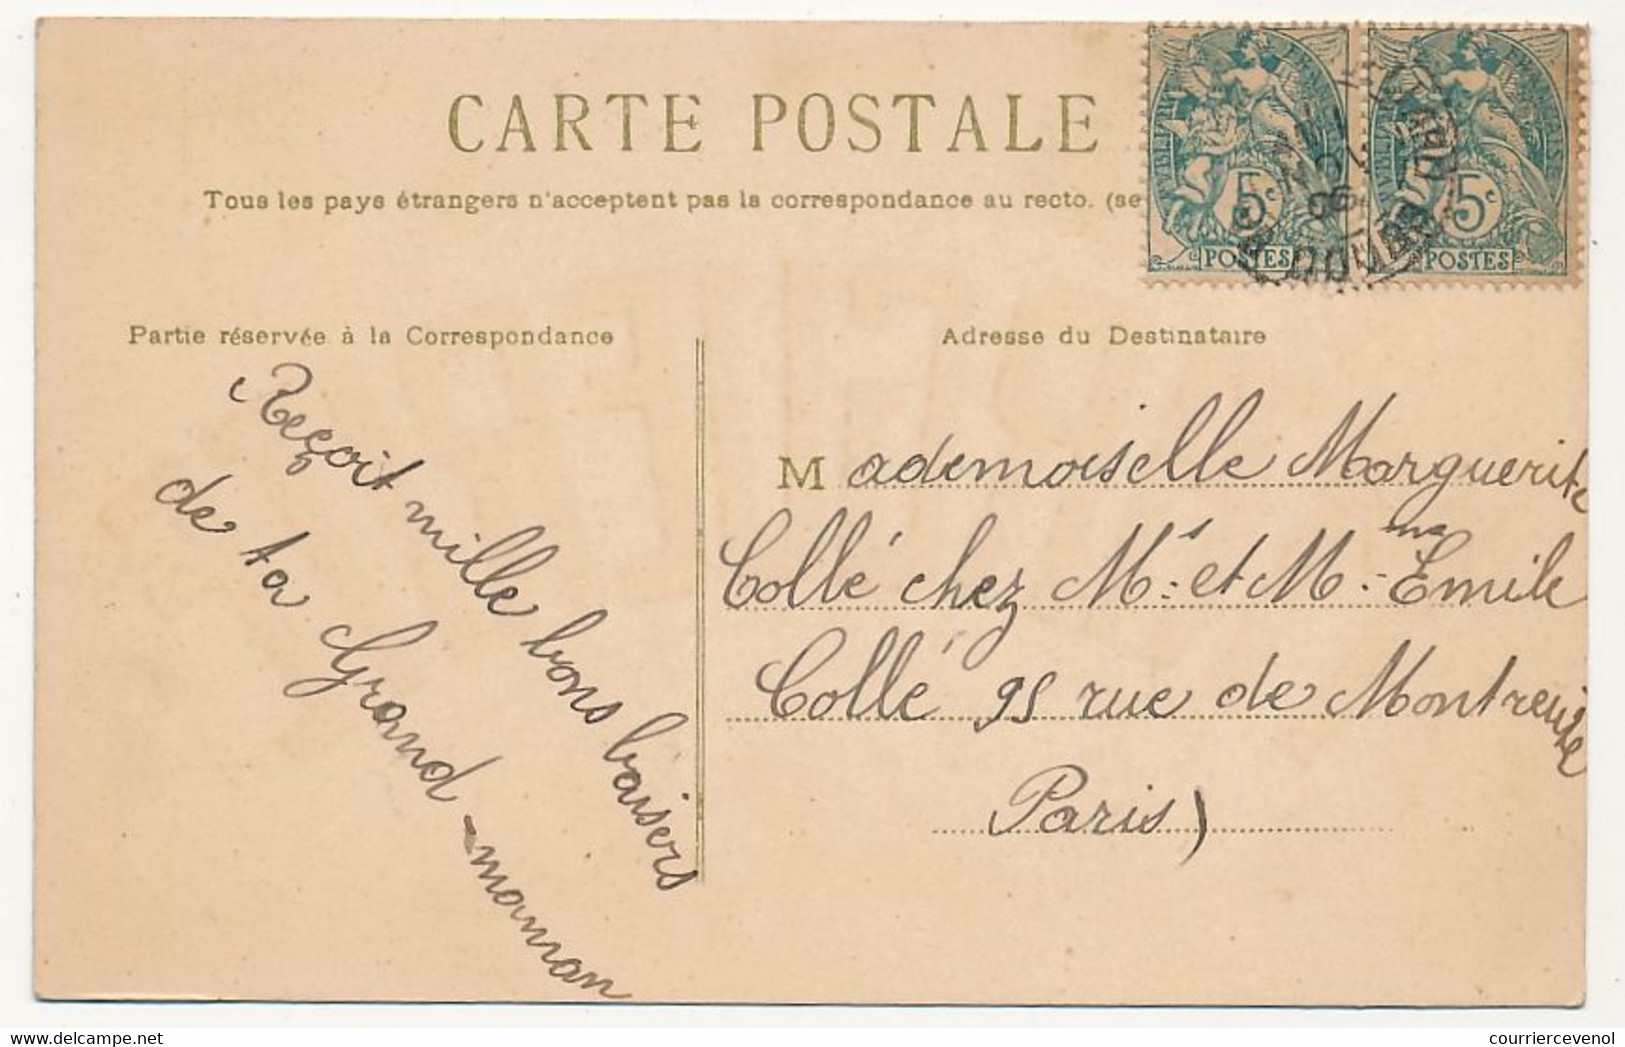 CARTE POSTALE
Tous les pays étrangers n'acceptent pas la correspondance au recto. (se
5c 5c
POSTES POSTES
06
DOUBS
Partie réservée à la Correspondance
Adresse du Destinataire
Reçoit mille bons baisers
de ta Grand-maman
Mademoiselle Marguerite
Collé chez Ms et Mme Emile
Collé 95 rue de Montreuil
Paris)
www.courriercevenol.com